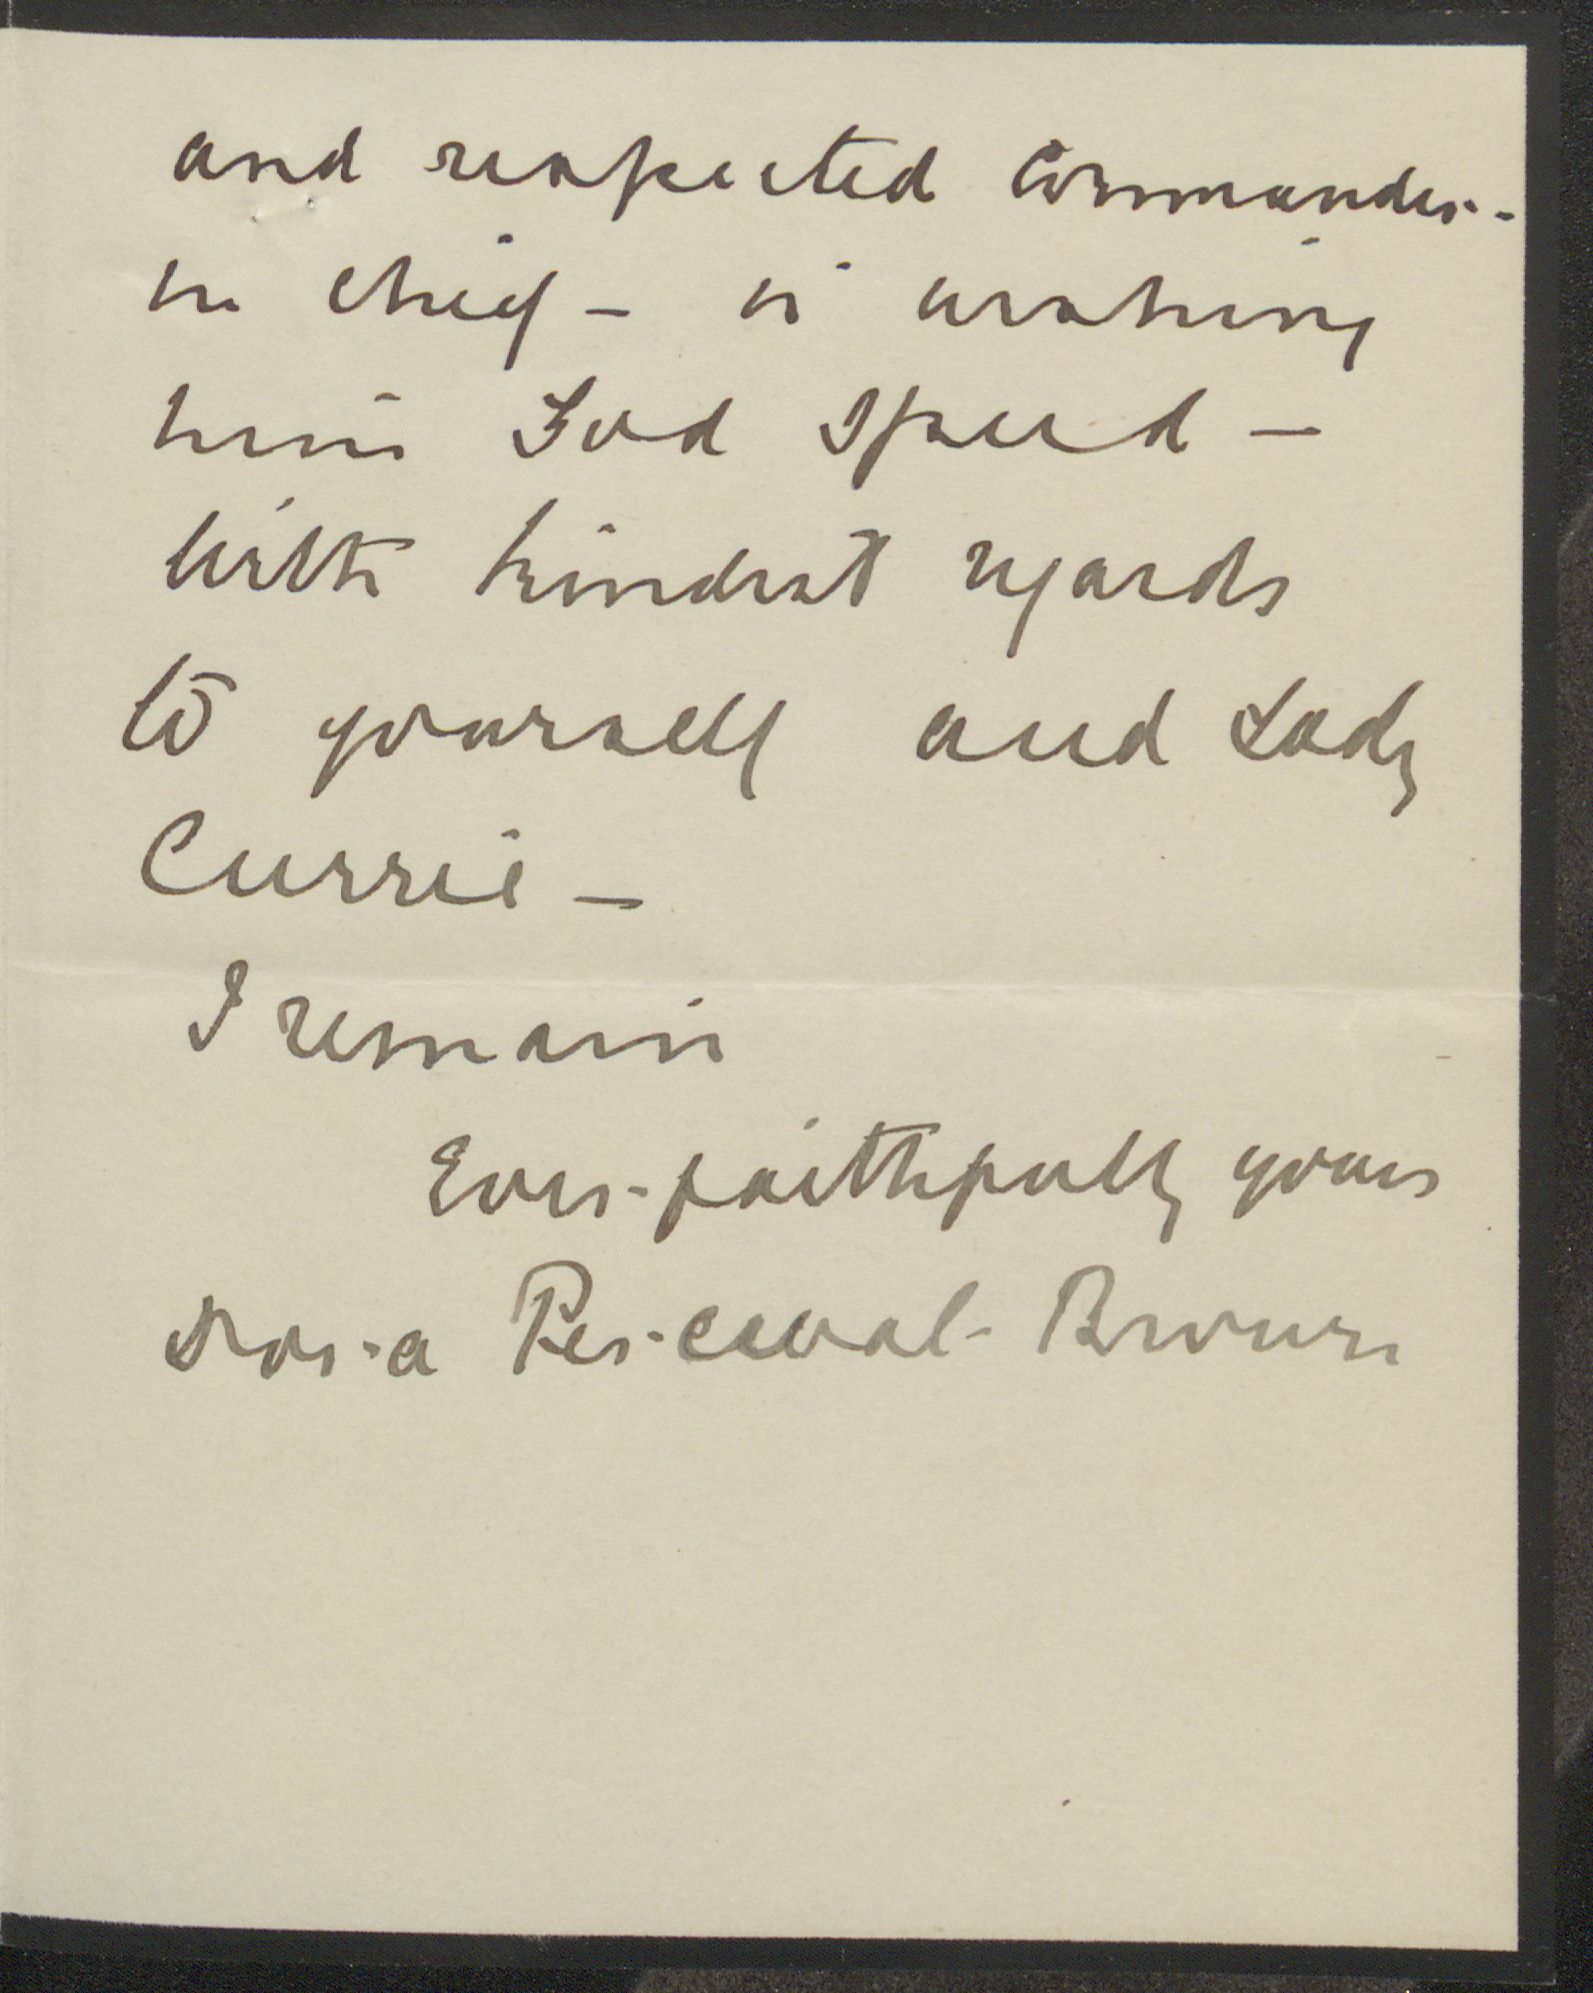 and respected Commander-
in chief - in wishing
him God speed -
With kindest regards
to yourself and Lady
Currie -
I remain
Ever faithfully yours
Nora Perceval-Brown